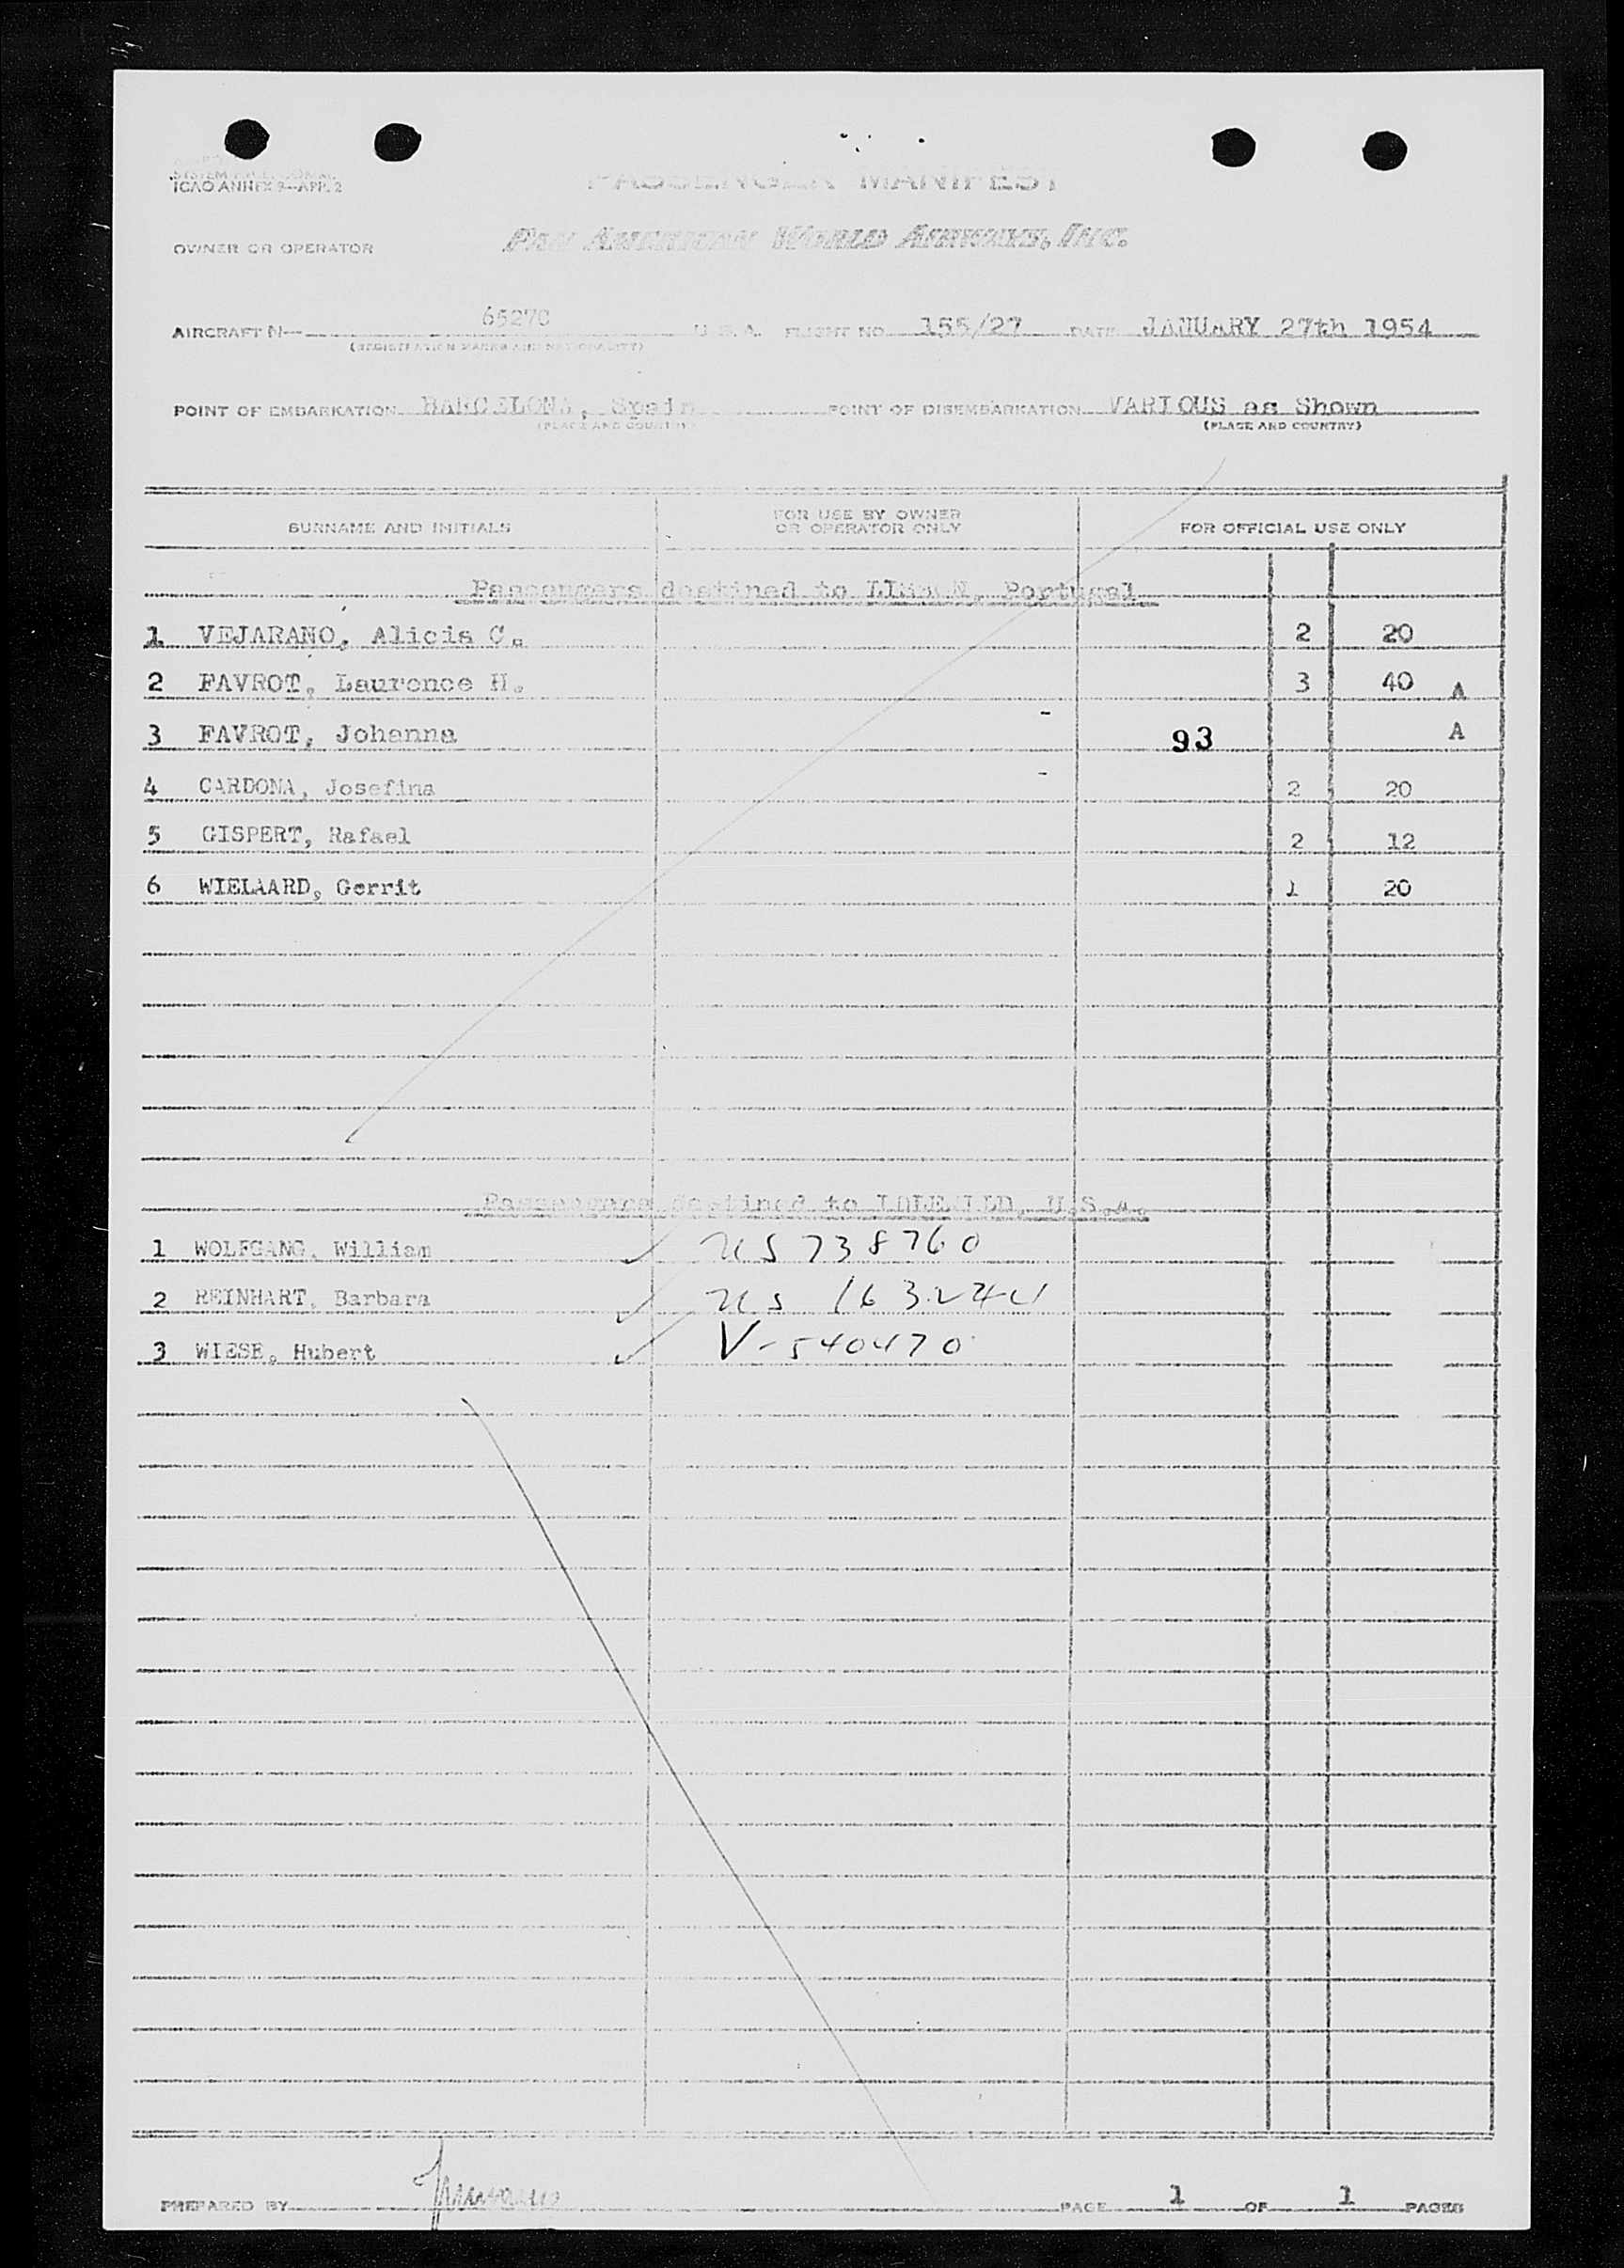 ICAO ANNEX 9—APP. 2
PASSENGER MANIFEST
OWNER OR OPERATOR PAN AMERICAN WORLD AIRWAYS, INC.
AIRCRAFT N— 65270 U.S.A. FLIGHT NO. 155/27 DATE JANUARY 27th 1954
(REGISTRATION MARKS AND NATIONALITY)
POINT OF EMBARKATION BARCELONA, Spain POINT OF DISEMBARKATION VARIOUS as Shown
(PLACE AND COUNTRY) (PLACE AND COUNTRY)
SURNAME AND INITIALS FOR USE BY OWNER OR OPERATOR ONLY FOR OFFICIAL USE ONLY
Passengers destined to LISBON, Portugal
1 VEJARANO, Alicia C. 2 20
2 FAVROT, Laurence H. 3 40 A
3 FAVROT, Johanna 93 A
4 CARDONA, Josefina 2 20
5 GISPERT, Rafael 2 12
6 WIELAARD, Gerrit 1 20
Passengers destined to IDLEWILD, U.S.A.
1 WOLFGANG, William ✓ US 738760
2 REINHART, Barbara ✓ US
3 WIESE, Hubert ✓ V-540470
PREPARED BY PAGE 1 OF 1 PAGES